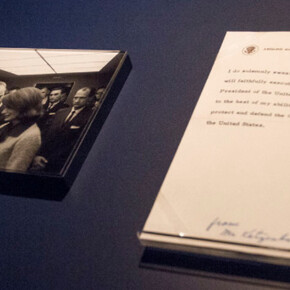 I do solemnly swea
will faithfully execut
President of the Unite
to the best of my abili
protect and defend the
the United States.
from